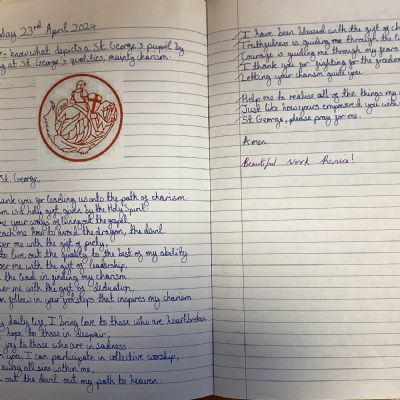 day 23rd April 2024
know what depicts a St. George's pupil by
at St. George's qualities, mainly charism.
St. George,
thank you for leading us onto the path of charism.
is a holy gift, given by the Holy Spirit.
me your ways of living out the gospel
teach me how to avoid the dragon, the devil.
me with the gift of piety,
to live out the quality to the best of my ability
me with the gift of leadership,
the Lord in finding my charism.
me with the gift of dedication,
follow in your footsteps that inspires my charism.
daily life, I bring love to those who are heartbroken
hope to those in despair,
joy to those who are in sadness.
you, I can participate in collective worship,
away all sins within me,
out the devil out my path to heaven.
I have been blessed with the gift of
Truthfulness is guiding me through the
Courage is guiding me through my years.
I thank you for fighting for the
Letting your charism guide you.
Help me to realise all of the things my
Just like how yours empowered you with
St George, please pray for me.
Amen.
Beautiful work